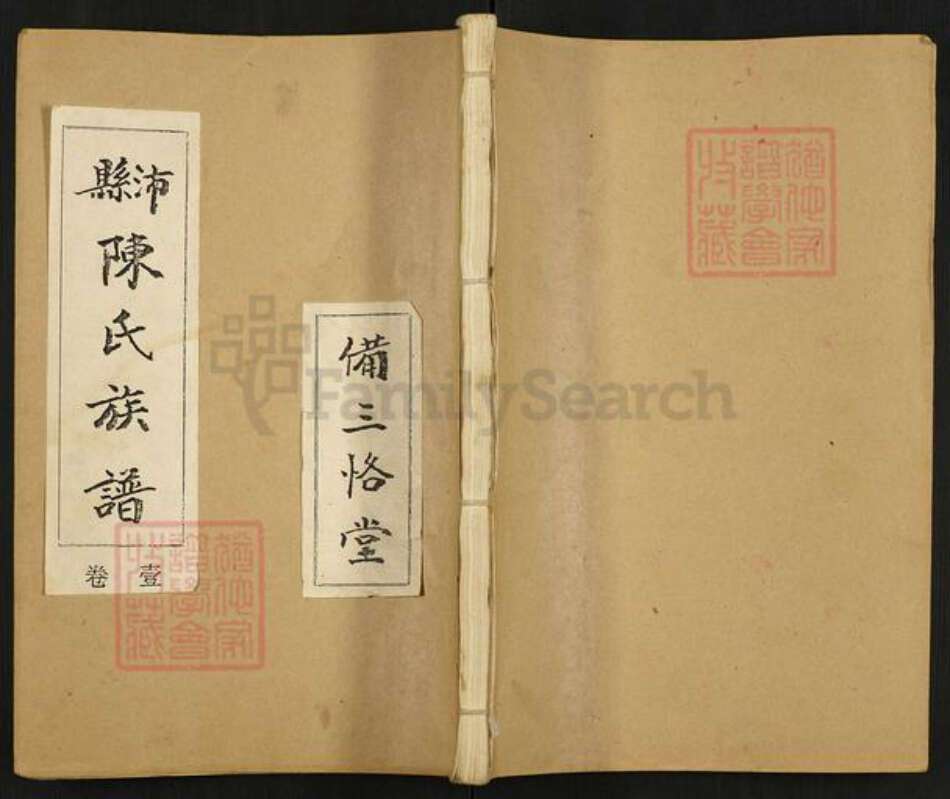 沛縣
陳氏族譜
壹卷
備三恪堂
猶他家
譜學會
收藏
猶他家
譜學會
收藏
FamilySearch